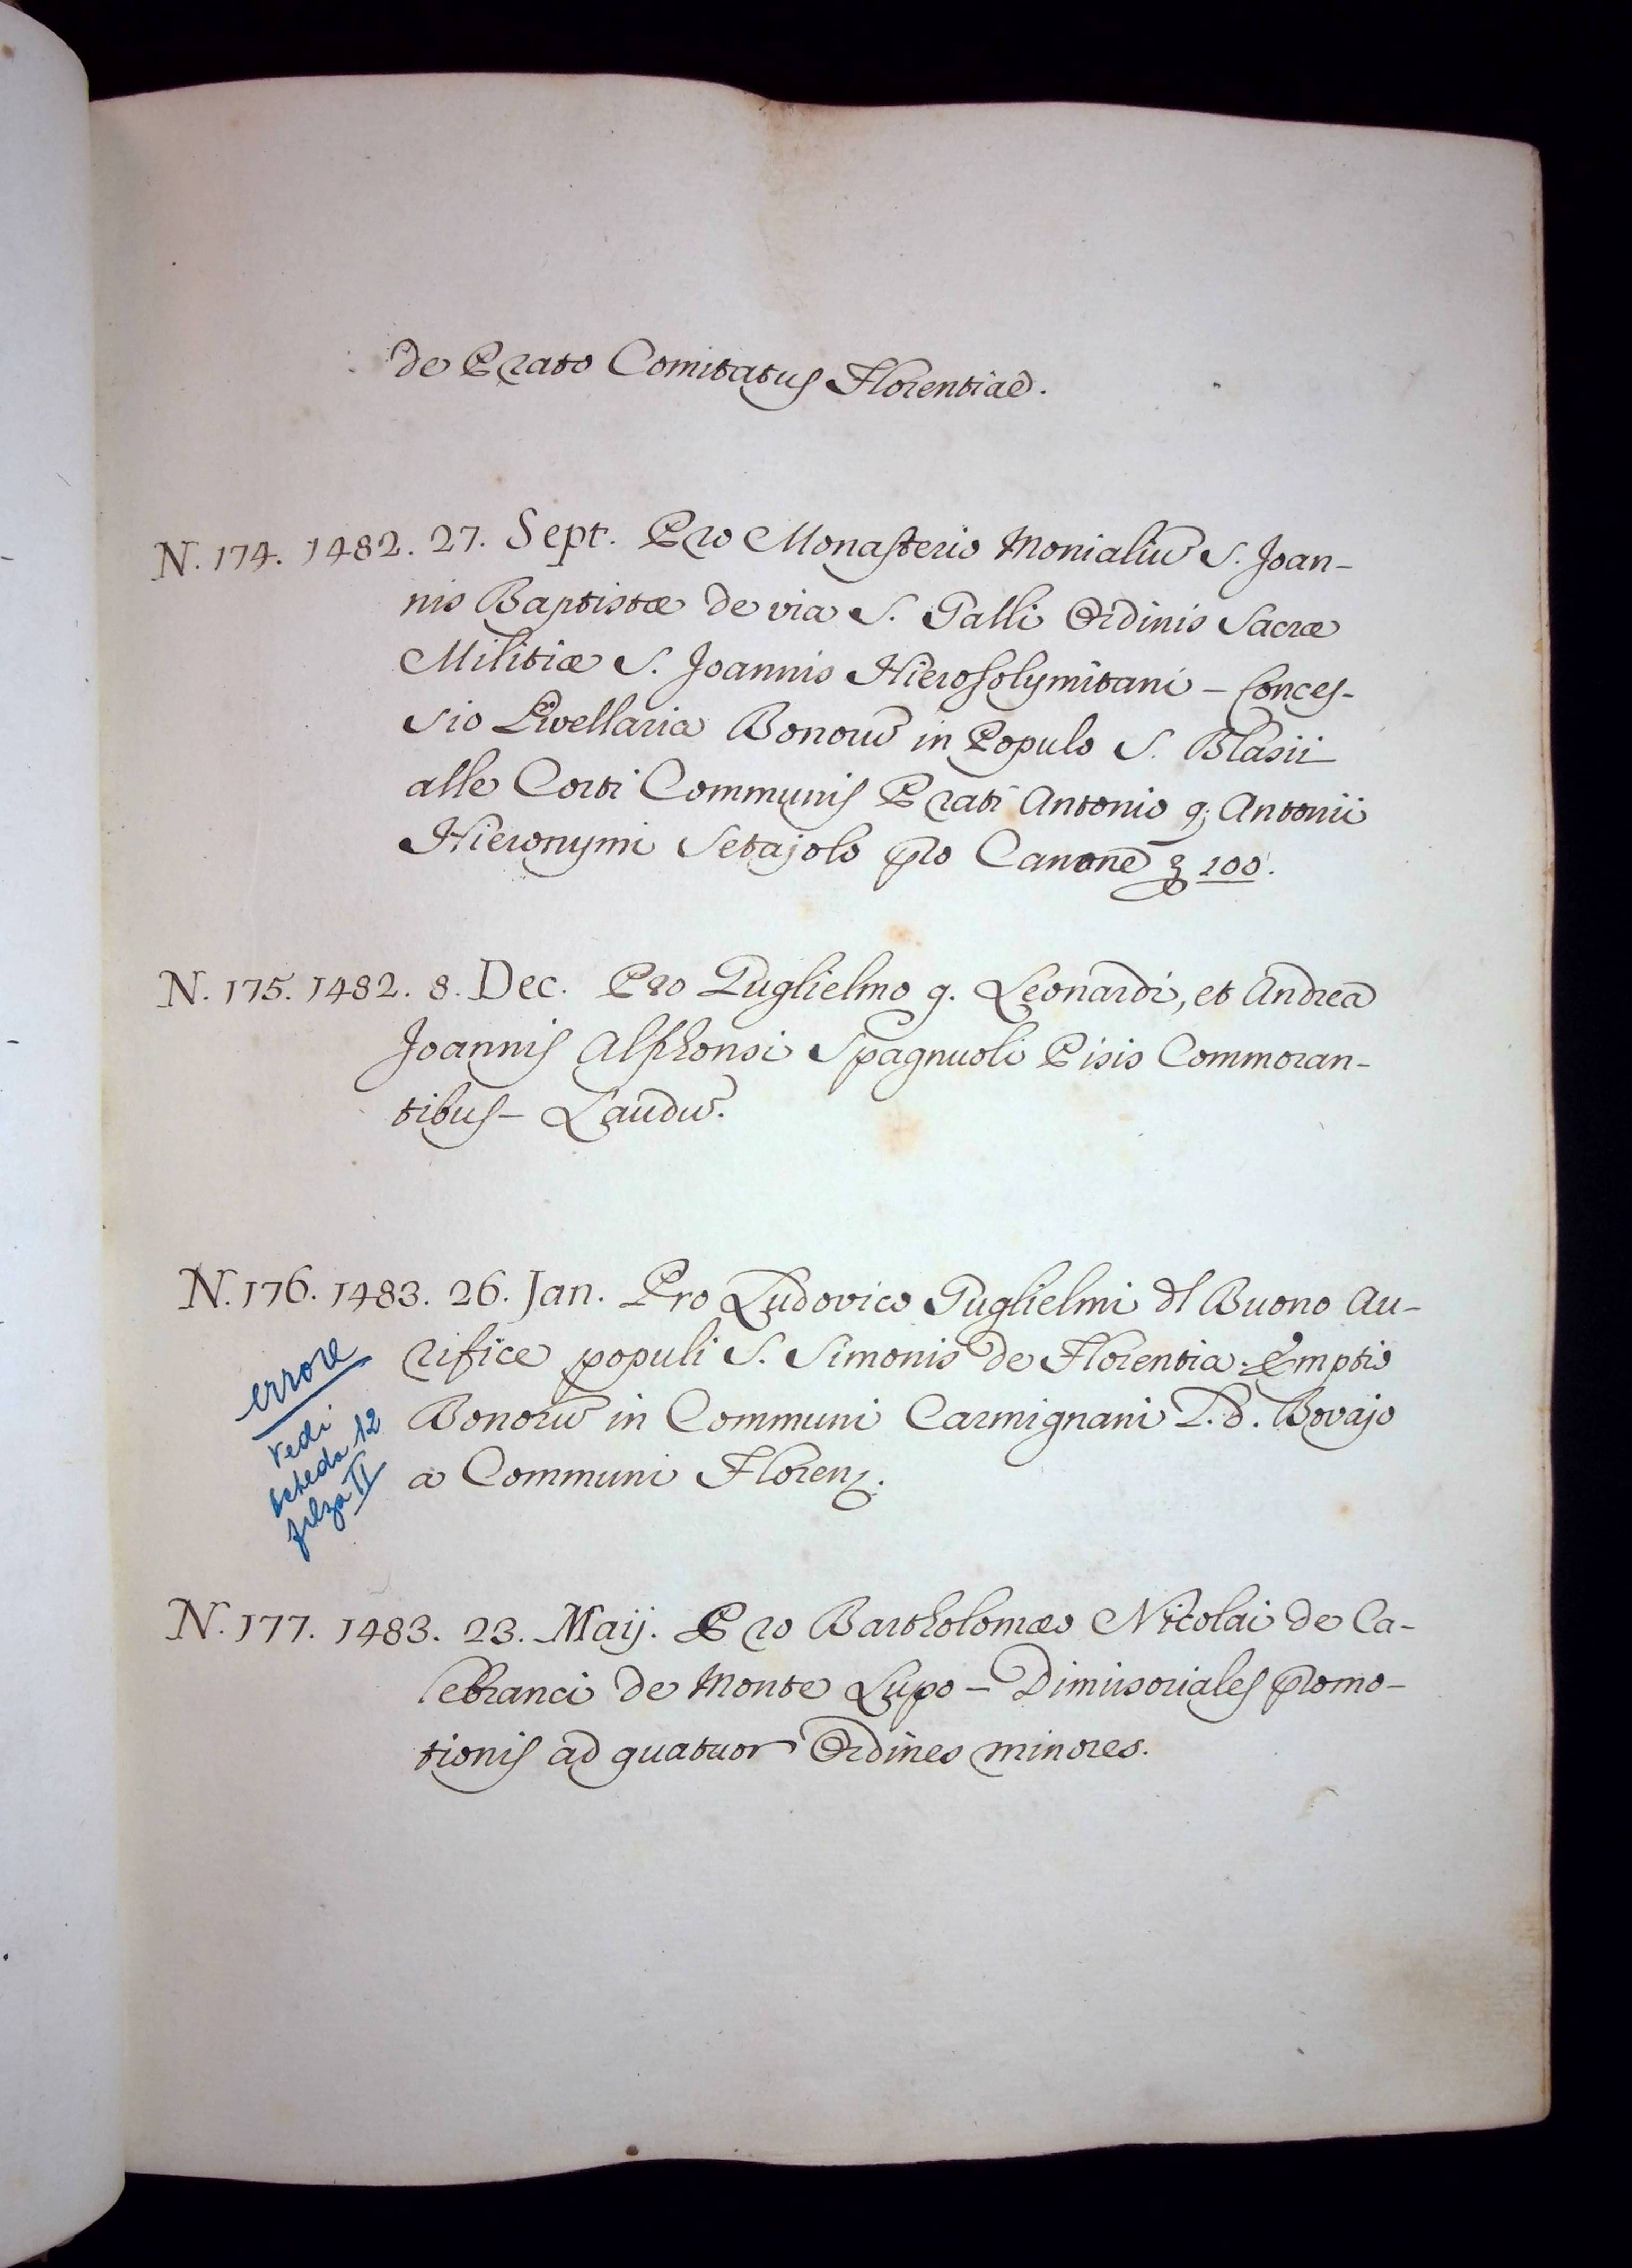 de Prato Comitatus Florentiae.
N. 174. 1482. 27. Sept. Pro Monasterio Monialiū S. Joan-
nis Baptistæ de via S. Galli Ordinis Sacræ
Militiæ S. Joannis Hierosolymitani - Conces-
sio Livellaria Bonorū in Populo S. Blasii
alle Corti Communis Prati Antonio q; Antonii
Hieronymi Setajolo pro Canone 100.
N. 175. 1482. 8. Dec. Pro Guglielmo q. Leonardi, et Andrea
Joannis Alphonsi Spagnuoli Pisis Commoran-
tibus - Laudū.
N. 176. 1483. 26. Jan. Pro Ludovico Guglielmi dl Buono Au-
rifice populi S. Simonis de Florentia. Emptio
Bonorū in Communi Carmignani L. d. Bovajo
a Communi Florenz.
errore
vedi
scheda 12
filza II
N. 177. 1483. 23. Maij. Pro Bartholomæo Nicolai de Ca-
lebranci de Monte Lupo - Dimissoriales promo-
tionis ad quatuor Ordines minores.